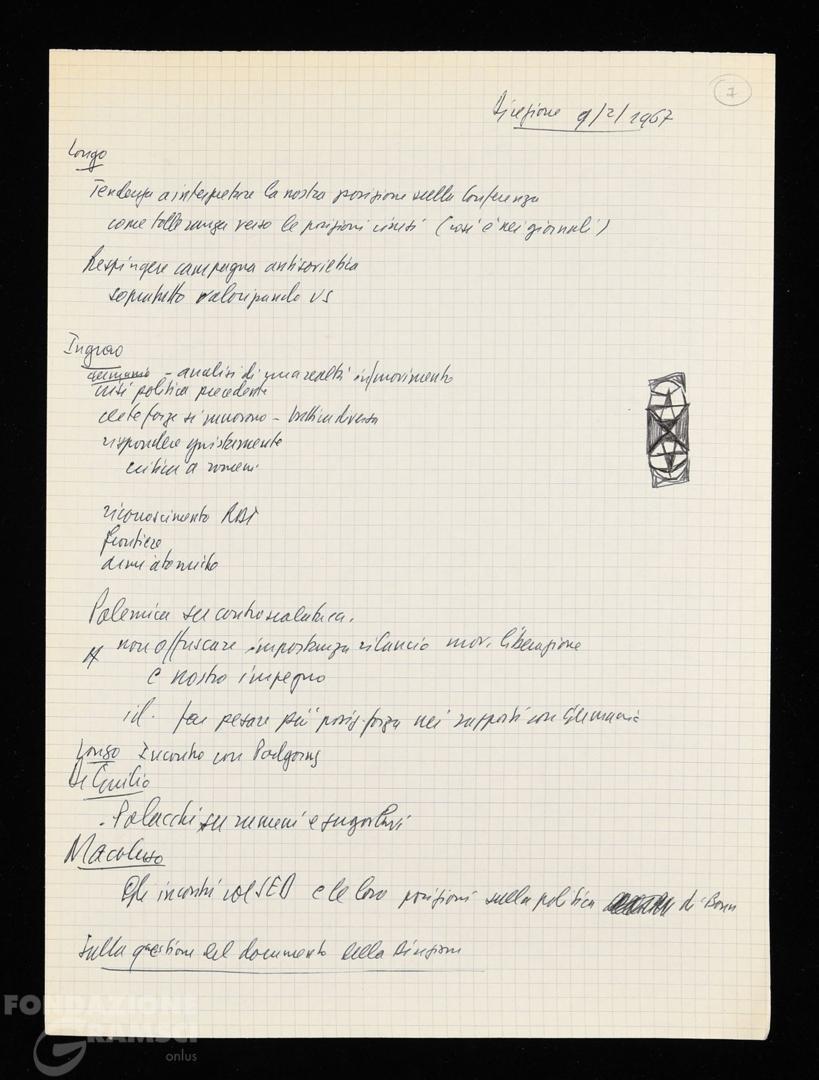 7
Direzione 9/2/1967
Longo
Tendenza a interpretare la nostra posizione sulla Conferenza
come tolleranza verso le posizioni cinesi (così è nei giornali)
Respingere campagna antisovietica
soprattutto valorizzando US
Ingrao
Germania - analisi di una realtà in movimento
crisi politica precedente
che le forze si muovono -
rispondere giustamente
critica a romeni
riconoscimento RDT
frontiere
armi atomiche
Polemica su
non offuscare importanza rilancio mov. liberazione
e nostro impegno
id. far pesare più posiz. forza nei rapporti con Germania
Longo Incontro con Podgorny
Polacchi su rumeni e
Macaluso
Gli incontri col SED e le loro posizioni sulla politica di Bonn
Sulla questione del documento della Direzione
FONDAZIONE
GRAMSCI
onlus